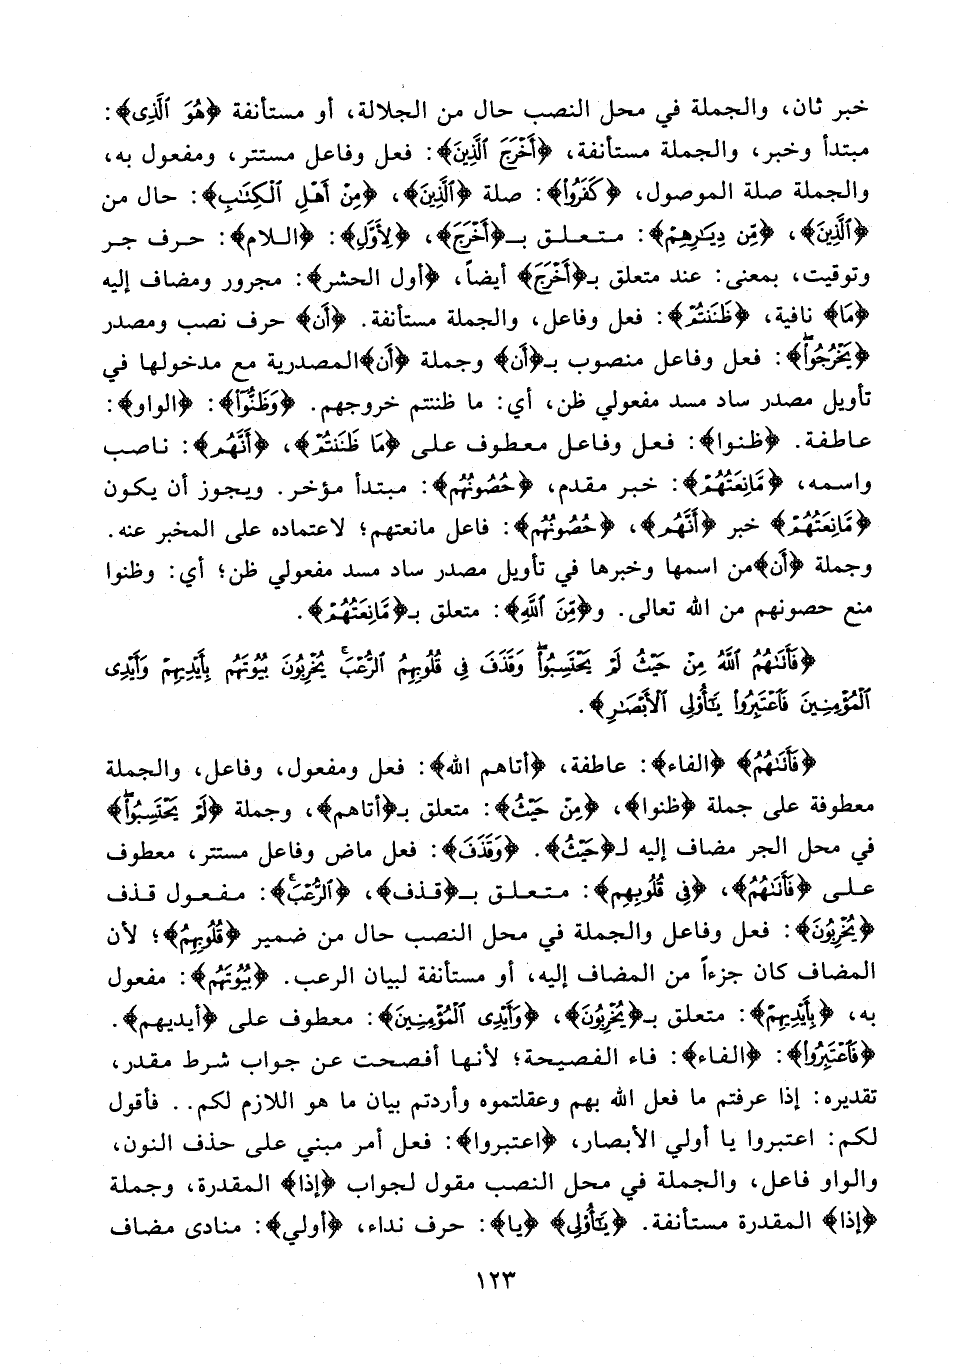 خبر ثان، والجملة في محل النصب حال من الجلالة، أو مستأنفة ﴿هُوَ ٱلَّذِىٓ﴾:
مبتدأ وخبر، والجملة مستأنفة، ﴿أَخْرَجَ ٱلَّذِينَ﴾: فعل وفاعل مستتر، ومفعول به،
والجملة صلة الموصول، ﴿كَفَرُوا۟﴾: صلة ﴿ٱلَّذِينَ﴾، ﴿مِنْ أَهْلِ ٱلْكِتَٰبِ﴾: حال من
﴿ٱلَّذِينَ﴾، ﴿مِن دِيَٰرِهِمْ﴾: متعلق بـ﴿أَخْرَجَ﴾، ﴿لِأَوَّلِ﴾: ﴿اللام﴾: حرف جر
وتوقيت، بمعنى: عند متعلق بـ﴿أَخْرَجَ﴾ أيضاً، ﴿أول الحشر﴾: مجرور ومضاف إليه
﴿مَا﴾ نافية، ﴿ظَنَنتُمْ﴾: فعل وفاعل، والجملة مستأنفة. ﴿أَن﴾ حرف نصب ومصدر
﴿يَخْرُجُوا۟ۖ﴾: فعل وفاعل منصوب بـ﴿أَن﴾ وجملة ﴿أَن﴾المصدرية مع مدخولها في
تأويل مصدر ساد مسد مفعولي ظن، أي: ما ظننتم خروجهم. ﴿وَظَنُّوٓا۟﴾: ﴿الواو﴾:
عاطفة. ﴿ظنوا﴾: فعل وفاعل معطوف على ﴿مَا ظَنَنتُمْ﴾، ﴿أَنَّهُم﴾: ناصب
واسمه، ﴿مَّانِعَتُهُمْ﴾: خبر مقدم، ﴿حُصُونُهُم﴾: مبتدأ مؤخر. ويجوز أن يكون
﴿مَّانِعَتُهُمْ﴾ خبر ﴿أَنَّهُم﴾، ﴿حُصُونُهُم﴾: فاعل مانعتهم؛ لاعتماده على المخبر عنه.
وجملة ﴿أن﴾من اسمها وخبرها في تأويل مصدر ساد مسد مفعولي ظن؛ أي: وظنوا
منع حصونهم من الله تعالى. و﴿مِّنَ ٱللَّهِ﴾: متعلق بـ﴿مَّانِعَتُهُمْ﴾.
﴿فَأَتَىٰهُمُ ٱللَّهُ مِنْ حَيْثُ لَمْ يَحْتَسِبُوا۟ۖ وَقَذَفَ فِى قُلُوبِهِمُ ٱلرُّعْبَۚ يُخْرِبُونَ بُيُوتَهُم بِأَيْدِيهِمْ وَأَيْدِى
ٱلْمُؤْمِنِينَ فَٱعْتَبِرُوا۟ يَٰٓأُو۟لِى ٱلْأَبْصَٰرِ﴾.
﴿فَأَتَىٰهُمُ﴾ ﴿الفاء﴾: عاطفة، ﴿أتاهم الله﴾: فعل ومفعول، وفاعل، والجملة
معطوفة على جملة ﴿ظنوا﴾، ﴿مِنْ حَيْثُ﴾: متعلق بـ﴿أتاهم﴾، وجملة ﴿لَمْ يَحْتَسِبُوا۟ۖ﴾
في محل الجر مضاف إليه لـ﴿حَيْثُ﴾. ﴿وَقَذَفَ﴾: فعل ماض وفاعل مستتر، معطوف
على ﴿فَأَتَىٰهُمُ﴾، ﴿فِى قُلُوبِهِم﴾: متعلق بـ﴿قذف﴾، ﴿ٱلرُّعْبَۚ﴾: مفعول قذف
﴿يُخْرِبُونَ﴾: فعل وفاعل والجملة في محل النصب حال من ضمير ﴿قُلُوبِهِمُ﴾؛ لأن
المضاف كان جزءاً من المضاف إليه، أو مستأنفة لبيان الرعب. ﴿بُيُوتَهُم﴾: مفعول
به، ﴿بِأَيْدِيهِمْ﴾: متعلق بـ﴿يُخْرِبُونَ﴾، ﴿وَأَيْدِى ٱلْمُؤْمِنِينَ﴾: معطوف على ﴿أيديهم﴾.
﴿فَٱعْتَبِرُوا۟﴾: ﴿الفاء﴾: فاء الفصيحة؛ لأنها أفصحت عن جواب شرط مقدر،
تقديره: إذا عرفتم ما فعل الله بهم وعقلتموه وأردتم بيان ما هو اللازم لكم.. فأقول
لكم: اعتبروا يا أولي الأبصار، ﴿اعتبروا﴾: فعل أمر مبني على حذف النون،
والواو فاعل، والجملة في محل النصب مقول لجواب ﴿إذا﴾ المقدرة، وجملة
﴿إذا﴾ المقدرة مستأنفة. ﴿يَٰٓأُو۟لِى﴾ ﴿يا﴾: حرف نداء، ﴿أولي﴾: منادى مضاف
١٢٣